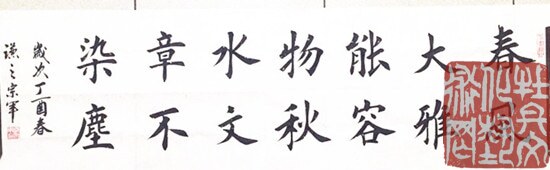 春風
大雅
能容
物秋
水文
章不
染塵
歲次丁酉春